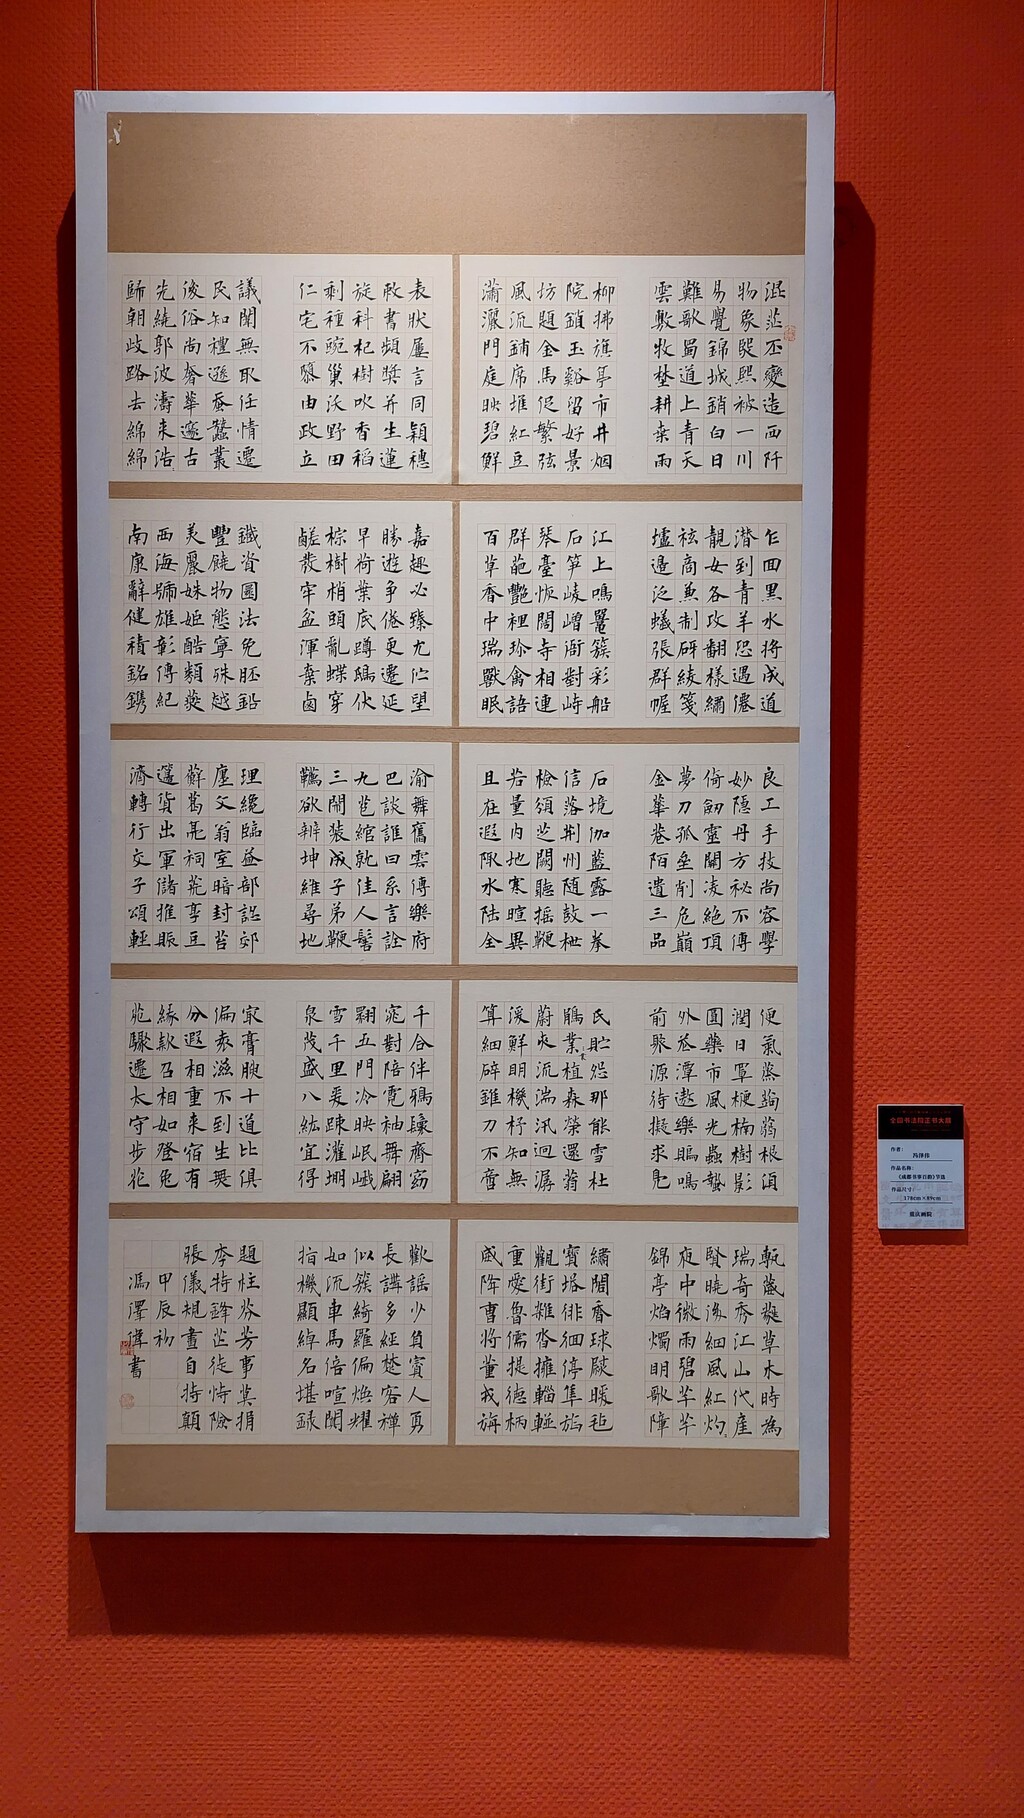 混茫丕變造西阡
物象熙熙被一川
易覺錦城銷白日
難歌蜀道上青天
雲敷牧埜耕桑雨
柳拂旗亭市井烟
院鎖玉谿留好景
坊題金馬促繁弦
風流鋪席堆紅豆
瀟灑門庭映碧鮮
表狀屢言同穎穗
敕書頻獎并生蓮
旋科杞樹吹香稻
剩種豌巢沃野田
仁宅不隳由政立
議閑無取任情遷
民知禮遜蚕蠶叢
後俗尚奢華邃古
先繞郭波濤来浩
歸朝歧路去綿綿
乞囬黑水将成道
潛到青羊恐遇僊
靚女各攻翻樣繡
袨商兼制研綾箋
壚邊泛蟻張群幄
江上鳴鼉簇彩船
石笋崚嶒衙對峙
琴臺恢闊寺相連
群葩艷裡珍禽語
百草香中瑞獸眠
嘉趣必臻尤伫望
勝遊争倦更遷延
早荷葉底蹲鴟伏
棕樹梢頭亂蝶穿
鹺發牢盆渾棄鹵
鐵資圜法免胚鉛
豐饒物態寧殊越
美麗姝姬酷類燕
西海號雄彰傳紀
南康辭健積銘鐫
良工手技尚容學
妙隱丹方秘不傳
倚劒靈關凌絶頂
夢刀孤壘削危巔
金華巷陌遺三品
石境伽藍露一拳
信落荆州随鼓枻
檢須芝闕聽摇鞭
若量内地寒暄異
且在遐陬水陸全
渝舞舊雲傳樂府
巴談誰曰系言詮
九苞綰就佳人髻
三鬧裝成子弟鞭
韉欲辨坤維尋地
理纔臨益部認郊
廛文翁室暗封苔
蘚葛亮祠荒享豆
籩貨出軍儲推賑
濟轉行交子頌輕
便氣蒸蒟蒻根須
潤日罩楩楠樹影
圓藥市風光蟲蟄
外蚕潭遨樂鳴
前聚源待擬求鳧
民貯怨那能雪杜
鵑業植森榮還蓊
蔚夾流湍汛迴潺
湲鮮明機杼知無
算細碎錐刀不啻
千合伴鴉鬟齊窈
窕對陪霓袖舞翩
翾五門冷映岷峨
雪千里爰疎灌堋
泉茂盛八紘宜得
最膏腴十道比俱
偏袤滋不到生無
分遐相重来宿有
緣款召相如登兔
苑驟遷太守步花
甎葳蕤草木時為
瑞奇秀江山代産
賢曉後細風紅灼
夜中微雨碧芊芊
錦亭焰燭明歌障
繡閣香球蹴暖毡
寶塔徘徊停隼旟
觀街雜沓擁輜軿
重愛魯儒提德柄
威降曹将董戎旃
歡謡少負賓人勇
長講多經楚客禪
似簇綺羅偏煥耀
如流車馬倍喧闐
指機顯婥名堪錄
題柱芬芳事莫捐
李特鋒芒徒恃險
張儀規畫自持顛
甲辰秋
馮澤偉書
全国书法院正书大展
作者:
冯泽伟
作品名称:
《成都书事百韵》节选
作品尺寸:
178cm×89cm
重庆画院